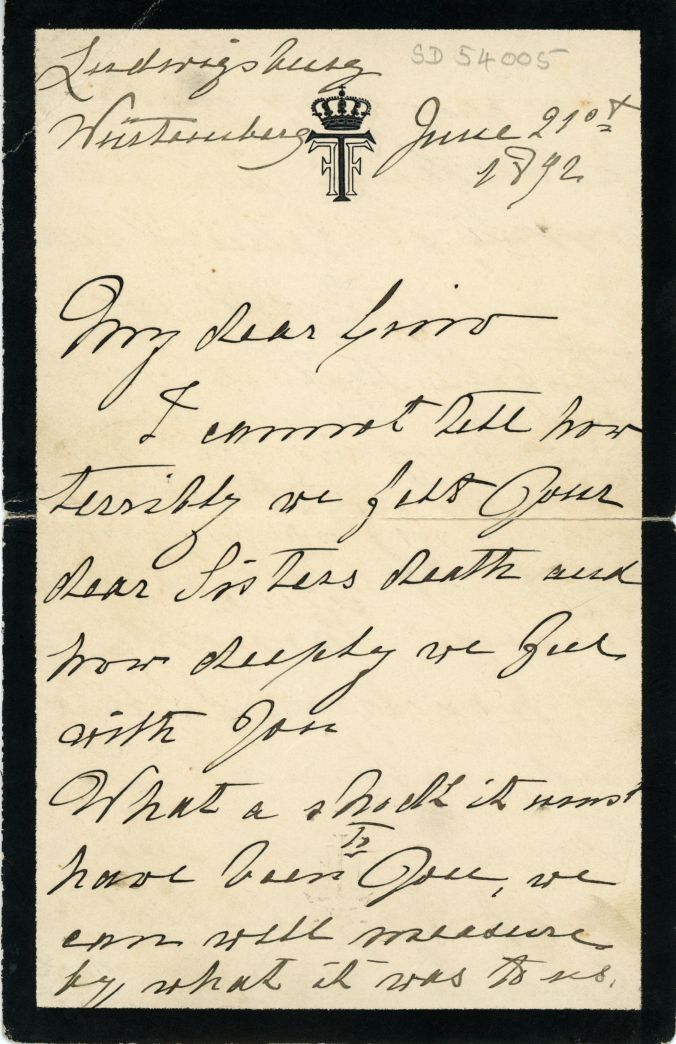 Ludwigsburg
SD 54005
Würtemberg
June 21st
1892
My dear Gino
I cannot tell how
terribly we felt Your
dear Sisters death and
how deeply we feel
with You
What a shock it must
have been to You, we
can well measure
by what it was to us.